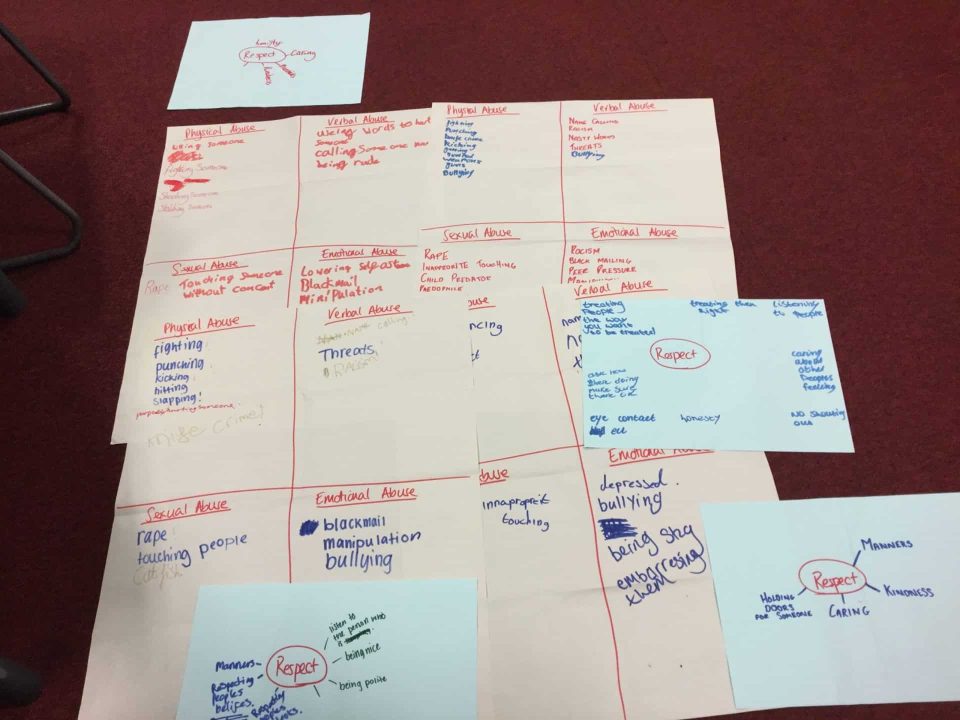 honesty
Respect
Caring
Physical Abuse
someone
Fighting Someone
Shooting Someone
Stabing Someone
Verbal Abuse
using words to hurt
someone
calling someone
being rude
Sexual Abuse
Rape Touching Someone
without concent
Emotional Abuse
Lowering
Blackmail
Minipulation
Physical Abuse
fighting
Punching
knife crime
Kicking
weapons
guns
Bullying
Verbal Abuse
NAME CALLING
RACISM
NASTY WORDS
THREATS
Bullying
Sexual Abuse
RAPE
INAPPROPRITE TOUCHING
CHILD PREDATOR
PAEDOPHILE
Emotional Abuse
RACISM
BLACK MAILING
PEER PRESSURE
Physical Abuse
fighting
punching
kicking
hitting
slapping!
knife crime!
Verbal Abuse
calling
Threats
Sexual Abuse
rape
touching people
Catfish
Emotional Abuse
blackmail
manipulation
bullying
Verbal Abuse
innapropriet
touching
Emotional
depressed.
bullying
being shy
embarresing
them
treating
People
the way
you want
to be treated
treating them
Right
Listening
to people
Respect
ask how
there doing
make sure
there OK
caring
about
other
Peoples
feeling
eye contact
honesty
NO shouting
out
Respect
MANNERS
KINDNESS
CARING
HOLDING
DOORS
FOR SOMEONE
Respect
listen to
the person who
is
being nice
being polite
Manners
Respecting
peoples
belifes.